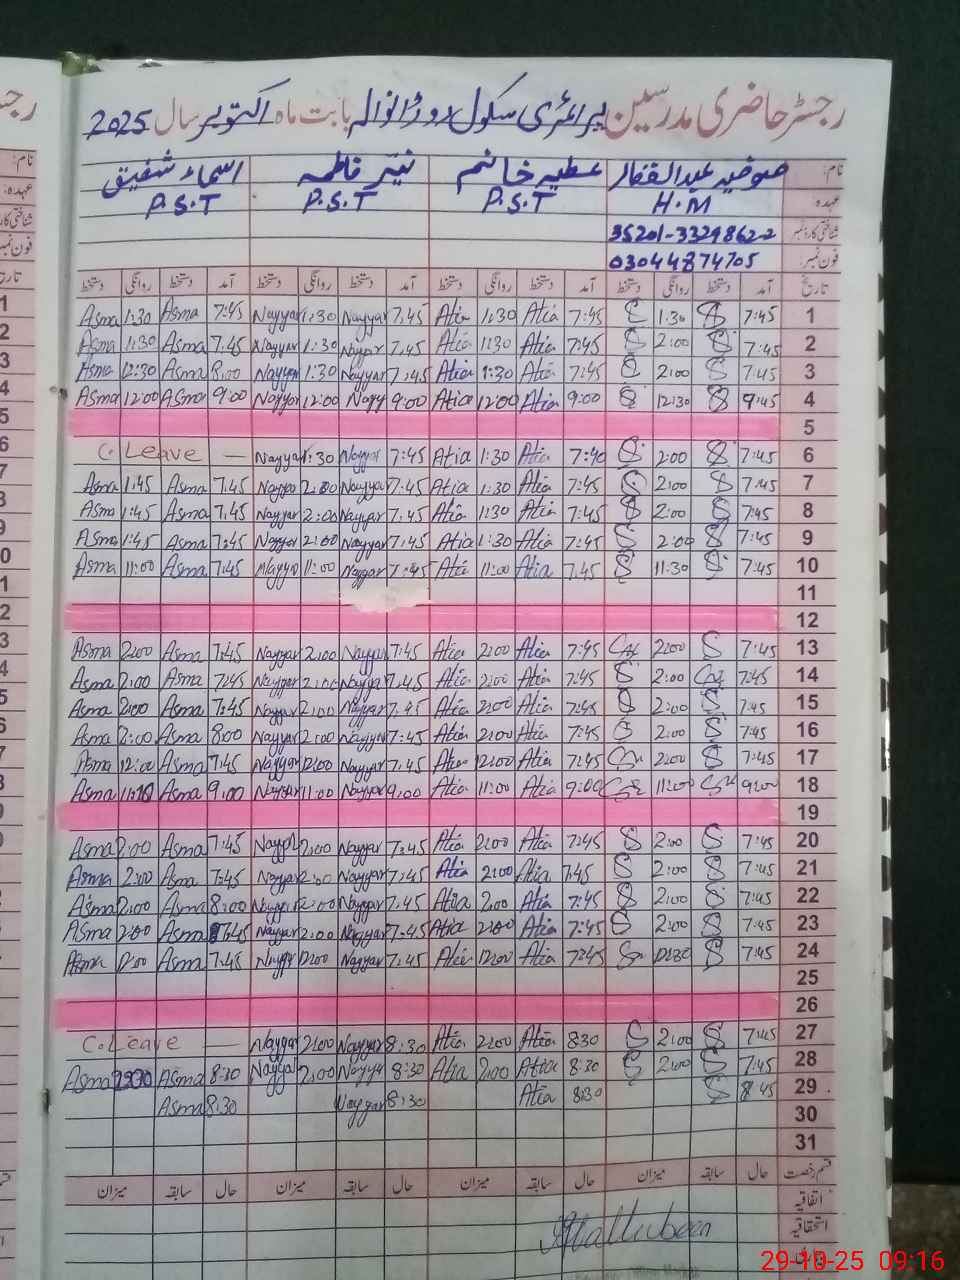 رجسٹر حاضری مدرسین پرائمری سکول روڑانوالہ بابت ماہ اکتوبر سال 2025
نام: صوفیہ عبدالغفار عطیہ خانم نیّر فاطمہ اسماء شفیق
عہدہ H.M P.S.T P.S.T P.S.T
شناختی کارڈ نمبر 35201-3329862-2
فون نمبر: 03044874705
تاریخ آمد دستخط روانگی دستخط آمد دستخط روانگی دستخط آمد دستخط روانگی دستخط آمد دستخط روانگی دستخط
Asma 1:30 Asma 7:45 Nayyar 1:30 Nayyar 7:45 Atia 1:30 Atia 7:45 1:30 7:45 1
Asma 1:30 Asma 7:45 Nayyar 1:30 Nayyar 7:45 Atia 1:30 Atia 7:45 2:00 7:45 2
Asma 12:30 Asma 8:00 Nayyar 1:30 Nayyar 7:45 Atia 1:30 Atia 7:45 2:00 7:45 3
Asma 12:00 Asma 9:00 Nayyar 12:00 Nayy 9:00 Atia 12:00 Atia 9:00 12:30 9:45 4
5
C. Leave — Nayyar 1:30 Nayyar 7:45 Atia 1:30 Atia 7:40 2:00 7:45 6
Asma 1:45 Asma 7:45 Nayyar 2:00 Nayyar 7:45 Atia 1:30 Atia 7:45 2:00 7:45 7
Asma 1:45 Asma 7:45 Nayyar 2:00 Nayyar 7:45 Atia 1:30 Atia 7:45 2:00 7:45 8
Asma 1:45 Asma 7:45 Nayyar 2:00 Nayyar 7:45 Atia 1:30 Atia 7:45 2:00 7:45 9
Asma 11:00 Asma 7:45 Nayyar 11:00 Nayyar 7:45 Atia 11:00 Atia 7:45 11:30 7:45 10
11
12
Asma 2:00 Asma 7:45 Nayyar 2:00 Nayyar 7:45 Atia 2:00 Atia 7:45 2:00 7:45 13
Asma 2:00 Asma 7:45 Nayyar 2:00 Nayyar 7:45 Atia 2:00 Atia 7:45 2:00 7:45 14
Asma 2:00 Asma 7:45 Nayyar 2:00 Nayyar 7:45 Atia 2:00 Atia 7:45 2:00 7:45 15
Asma 2:00 Asma 8:00 Nayyar 2:00 Nayyar 7:45 Atia 2:00 Atia 7:45 2:00 7:45 16
Asma 12:00 Asma 7:45 Nayyar 12:00 Nayyar 7:45 Atia 12:00 Atia 7:45 2:00 7:45 17
Asma Asma 9:00 Nayyar 11:00 Nayyar 9:00 Atia 11:00 Atia 9:00 11:00 9:00 18
19
Asma 2:00 Asma 7:45 Nayyar 2:00 Nayyar 7:45 Atia 2:00 Atia 7:45 2:00 7:45 20
Asma 2:00 Asma 7:45 Nayyar 2:00 Nayyar 7:45 Atia 2:00 Atia 7:45 2:00 7:45 21
Asma 2:00 Asma 8:00 Nayyar 2:00 Nayyar 7:45 Atia 2:00 Atia 7:45 2:00 7:45 22
Asma 2:00 Asma 7:45 Nayyar 2:00 Nayyar 7:45 Atia 2:00 Atia 7:45 2:00 7:45 23
Asma 12:00 Asma 7:45 Nayyar 12:00 Nayyar 7:45 Atia 12:00 Atia 7:45 12:30 7:45 24
25
26
C. Leave — Nayyar 2:00 Nayyar 8:30 Atia 2:00 Atia 8:30 2:00 7:45 27
Asma Asma 8:30 Nayyar 2:00 Nayyar 8:30 Atia 2:00 Atia 8:30 2:00 7:45 28
Asma 8:30 Nayyar 8:30 Atia 8:30 8:45 29
30
31
قسم رخصت حال سابقہ میزان حال سابقہ میزان حال سابقہ میزان حال سابقہ میزان
اتفاقیہ
استحقاقیہ
29-10-25 09:16